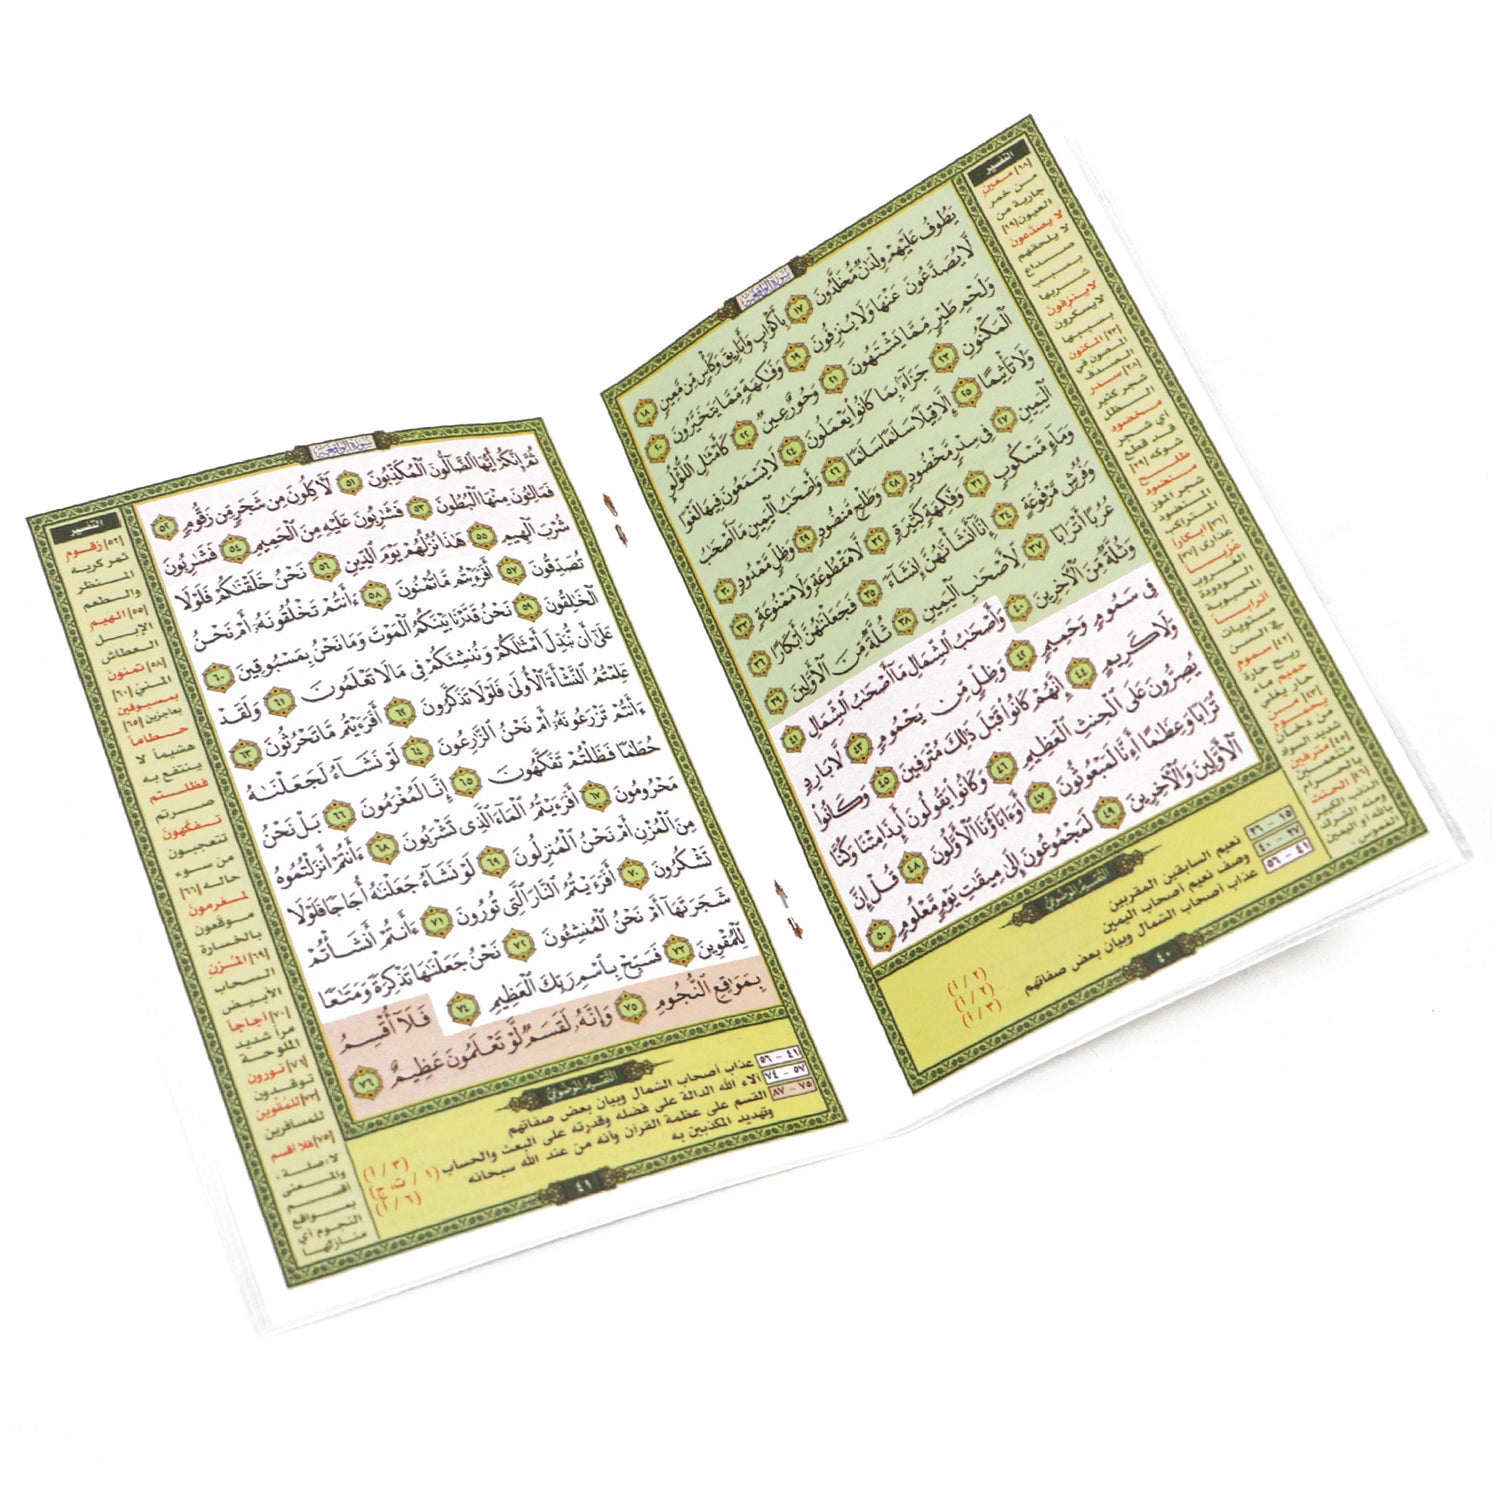 سورة الواقعة
يَطُوفُ عَلَيْهِمْ وِلْدَٰنٌ مُّخَلَّدُونَ ١٧ بِأَكْوَابٍ وَأَبَارِيقَ وَكَأْسٍ مِّن مَّعِينٍ ١٨
لَّا يُصَدَّعُونَ عَنْهَا وَلَا يُنزِفُونَ ١٩ وَفَٰكِهَةٍ مِّمَّا يَتَخَيَّرُونَ ٢٠
وَلَحْمِ طَيْرٍ مِّمَّا يَشْتَهُونَ ٢١ وَحُورٌ عِينٌ ٢٢ كَأَمْثَٰلِ ٱللُّؤْلُؤِ
ٱلْمَكْنُونِ ٢٣ جَزَآءًۢ بِمَا كَانُوا۟ يَعْمَلُونَ ٢٤ لَا يَسْمَعُونَ فِيهَا لَغْوًا
وَلَا تَأْثِيمًا ٢٥ إِلَّا قِيلًا سَلَٰمًا سَلَٰمًا ٢٦ وَأَصْحَٰبُ ٱلْيَمِينِ مَآ أَصْحَٰبُ
ٱلْيَمِينِ ٢٧ فِى سِدْرٍ مَّخْضُودٍ ٢٨ وَطَلْحٍ مَّنضُودٍ ٢٩ وَظِلٍّ مَّمْدُودٍ ٣٠
وَمَآءٍ مَّسْكُوبٍ ٣١ وَفَٰكِهَةٍ كَثِيرَةٍ ٣٢ لَّا مَقْطُوعَةٍ وَلَا مَمْنُوعَةٍ ٣٣
وَفُرُشٍ مَّرْفُوعَةٍ ٣٤ إِنَّآ أَنشَأْنَٰهُنَّ إِنشَآءً ٣٥ فَجَعَلْنَٰهُنَّ أَبْكَارًا ٣٦
عُرُبًا أَتْرَابًا ٣٧ لِّأَصْحَٰبِ ٱلْيَمِينِ ٣٨ ثُلَّةٌ مِّنَ ٱلْأَوَّلِينَ ٣٩
وَثُلَّةٌ مِّنَ ٱلْءَاخِرِينَ ٤٠ وَأَصْحَٰبُ ٱلشِّمَالِ مَآ أَصْحَٰبُ ٱلشِّمَالِ ٤١
فِى سَمُومٍ وَحَمِيمٍ ٤٢ وَظِلٍّ مِّن يَحْمُومٍ ٤٣ لَّا بَارِدٍ
وَلَا كَرِيمٍ ٤٤ إِنَّهُمْ كَانُوا۟ قَبْلَ ذَٰلِكَ مُتْرَفِينَ ٤٥ وَكَانُوا۟
يُصِرُّونَ عَلَى ٱلْحِنثِ ٱلْعَظِيمِ ٤٦ وَكَانُوا۟ يَقُولُونَ أَئِذَا مِتْنَا وَكُنَّا
تُرَابًا وَعِظَٰمًا أَءِنَّا لَمَبْعُوثُونَ ٤٧ أَوَءَابَآؤُنَا ٱلْأَوَّلُونَ ٤٨ قُلْ إِنَّ
ٱلْأَوَّلِينَ وَٱلْءَاخِرِينَ ٤٩ لَمَجْمُوعُونَ إِلَىٰ مِيقَٰتِ يَوْمٍ مَّعْلُومٍ ٥٠
التفسير
[١٨] معين
من خمر
جارية من
العيون [١٩]
لا يصدعون
لا يلحقهم
صداع
بسبب
شربها
لا ينزفون
لا يسكرون
بسببها
[٢٣] المكنون
المصون في
الصدف
[٢٨] سدر
شجر كثير
الظل
مخضود
أي شجر
قد قطع
شوكه [٢٩]
طلح
منضود
شجر الموز
المنضود
المتراكب
[٣٦] أبكارا
عذارى [٣٧]
عربا
الودودة
المحبوبة
أترابا
مستويات
في السن
[٤٢]
سموم
ريح حارة
حميم ماء
حار يغلي
[٤٣] من
يحموم
من دخان
شديد السواد
[٤٥] مترفين
متنعمين
بالحرام
[٤٦] الحنث
الذنب الكبير
ومنه الشرك
بالله أو اليمين
الغموس
التفسير الموضوعي
١٥ - ٢٦ نعيم السابقين المقربين (١/٢)
٢٧ - ٤٠ وصف نعيم أصحاب اليمين (١/٢)
٤١ - ٥٦ عذاب أصحاب الشمال وبيان بعض صفاتهم (١/٣)
٤٠
سورة الواقعة
ثُمَّ إِنَّكُمْ أَيُّهَا ٱلضَّآلُّونَ ٱلْمُكَذِّبُونَ ٥١ لَءَاكِلُونَ مِن شَجَرٍ مِّن زَقُّومٍ ٥٢
فَمَالِـُٔونَ مِنْهَا ٱلْبُطُونَ ٥٣ فَشَٰرِبُونَ عَلَيْهِ مِنَ ٱلْحَمِيمِ ٥٤ فَشَٰرِبُونَ
شُرْبَ ٱلْهِيمِ ٥٥ هَٰذَا نُزُلُهُمْ يَوْمَ ٱلدِّينِ ٥٦ نَحْنُ خَلَقْنَٰكُمْ فَلَوْلَا
تُصَدِّقُونَ ٥٧ أَفَرَءَيْتُم مَّا تُمْنُونَ ٥٨ ءَأَنتُمْ تَخْلُقُونَهُۥٓ أَمْ نَحْنُ
ٱلْخَٰلِقُونَ ٥٩ نَحْنُ قَدَّرْنَا بَيْنَكُمُ ٱلْمَوْتَ وَمَا نَحْنُ بِمَسْبُوقِينَ ٦٠
عَلَىٰٓ أَن نُّبَدِّلَ أَمْثَٰلَكُمْ وَنُنشِئَكُمْ فِى مَا لَا تَعْلَمُونَ ٦١ وَلَقَدْ
عَلِمْتُمُ ٱلنَّشْأَةَ ٱلْأُولَىٰ فَلَوْلَا تَذَكَّرُونَ ٦٢ أَفَرَءَيْتُم مَّا تَحْرُثُونَ ٦٣
ءَأَنتُمْ تَزْرَعُونَهُۥٓ أَمْ نَحْنُ ٱلزَّٰرِعُونَ ٦٤ لَوْ نَشَآءُ لَجَعَلْنَٰهُ
حُطَٰمًا فَظَلْتُمْ تَفَكَّهُونَ ٦٥ إِنَّا لَمُغْرَمُونَ ٦٦ بَلْ نَحْنُ
مَحْرُومُونَ ٦٧ أَفَرَءَيْتُمُ ٱلْمَآءَ ٱلَّذِى تَشْرَبُونَ ٦٨ ءَأَنتُمْ أَنزَلْتُمُوهُ
مِنَ ٱلْمُزْنِ أَمْ نَحْنُ ٱلْمُنزِلُونَ ٦٩ لَوْ نَشَآءُ جَعَلْنَٰهُ أُجَاجًا فَلَوْلَا
تَشْكُرُونَ ٧٠ أَفَرَءَيْتُمُ ٱلنَّارَ ٱلَّتِى تُورُونَ ٧١ ءَأَنتُمْ أَنشَأْتُمْ
شَجَرَتَهَآ أَمْ نَحْنُ ٱلْمُنشِـُٔونَ ٧٢ نَحْنُ جَعَلْنَٰهَا تَذْكِرَةً وَمَتَٰعًا
لِّلْمُقْوِينَ ٧٣ فَسَبِّحْ بِٱسْمِ رَبِّكَ ٱلْعَظِيمِ ٧٤ فَلَآ أُقْسِمُ
بِمَوَٰقِعِ ٱلنُّجُومِ ٧٥ وَإِنَّهُۥ لَقَسَمٌ لَّوْ تَعْلَمُونَ عَظِيمٌ ٧٦
التفسير
[٥٢] زقوم
ثمر كريه
المنظر
والطعم
[٥٥] الهيم
الإبل
العطاش
[٥٨] تمنون
المني [٦٠]
بمسبوقين
بعاجزين [٦٥]
حطاماً
هشيما لا
ينتفع به
فظلتم
صرتم
تفكهون
تتعجبون
من سوء
حاله [٦٦]
لمغرمون
موقعون
بالخسارة
[٦٩] المزن
السحاب
الأبيض
[٧٠] أجاجا
مراً شديد
الملوحة
[٧١] تورون
توقدون
[٧٣] للمقوين
للمسافرين
[٧٥] فلا أقسم
لا: صلة،
والمعنى
أقسم
بمواقع
النجوم أي
منازلها
التفسير الموضوعي
٤١ - ٥٦ عذاب أصحاب الشمال وبيان بعض صفاتهم (١/٣)
٥٧ - ٧٤ آلاء الله الدالة على فضله وقدرته على البعث والحساب (١/ت، ج)
٧٥ - ٨٧ القسم على عظمة القرآن وأنه من عند الله سبحانه (١/٦)
وتهديد المكذبين به
٤١